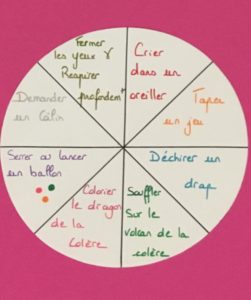 Fermer
les yeux &
Respirer
profondemt
Crier
dans un
oreiller
Taper
un jeu
Déchirer un
drap
Souffler
sur le
volcan de la
colère
Colorier
le dragon
de la
colère
Serrer ou lancer
un ballon
Demander
un Câlin